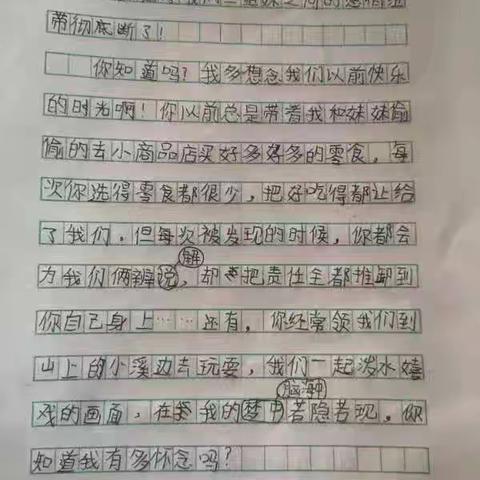 我们三姐妹之间的感情纽
带彻底断了！
你知道吗？我多想念我们以前快乐
的时光啊！你以前总是带着我和妹妹偷
偷的去小商品店买好多好多的零食，每
次你选得零食都很少，把好吃得都让给
了我们，但每次被发现的时候，你都会
解
为我们俩辨说，却把责任全都推卸到
你自己身上……还有，你经常领我们到
山上的小溪边去玩耍，我们一起泼水嬉
脑海中
戏的画面，在我的梦中若隐若现，你
知道我有多怀念吗？